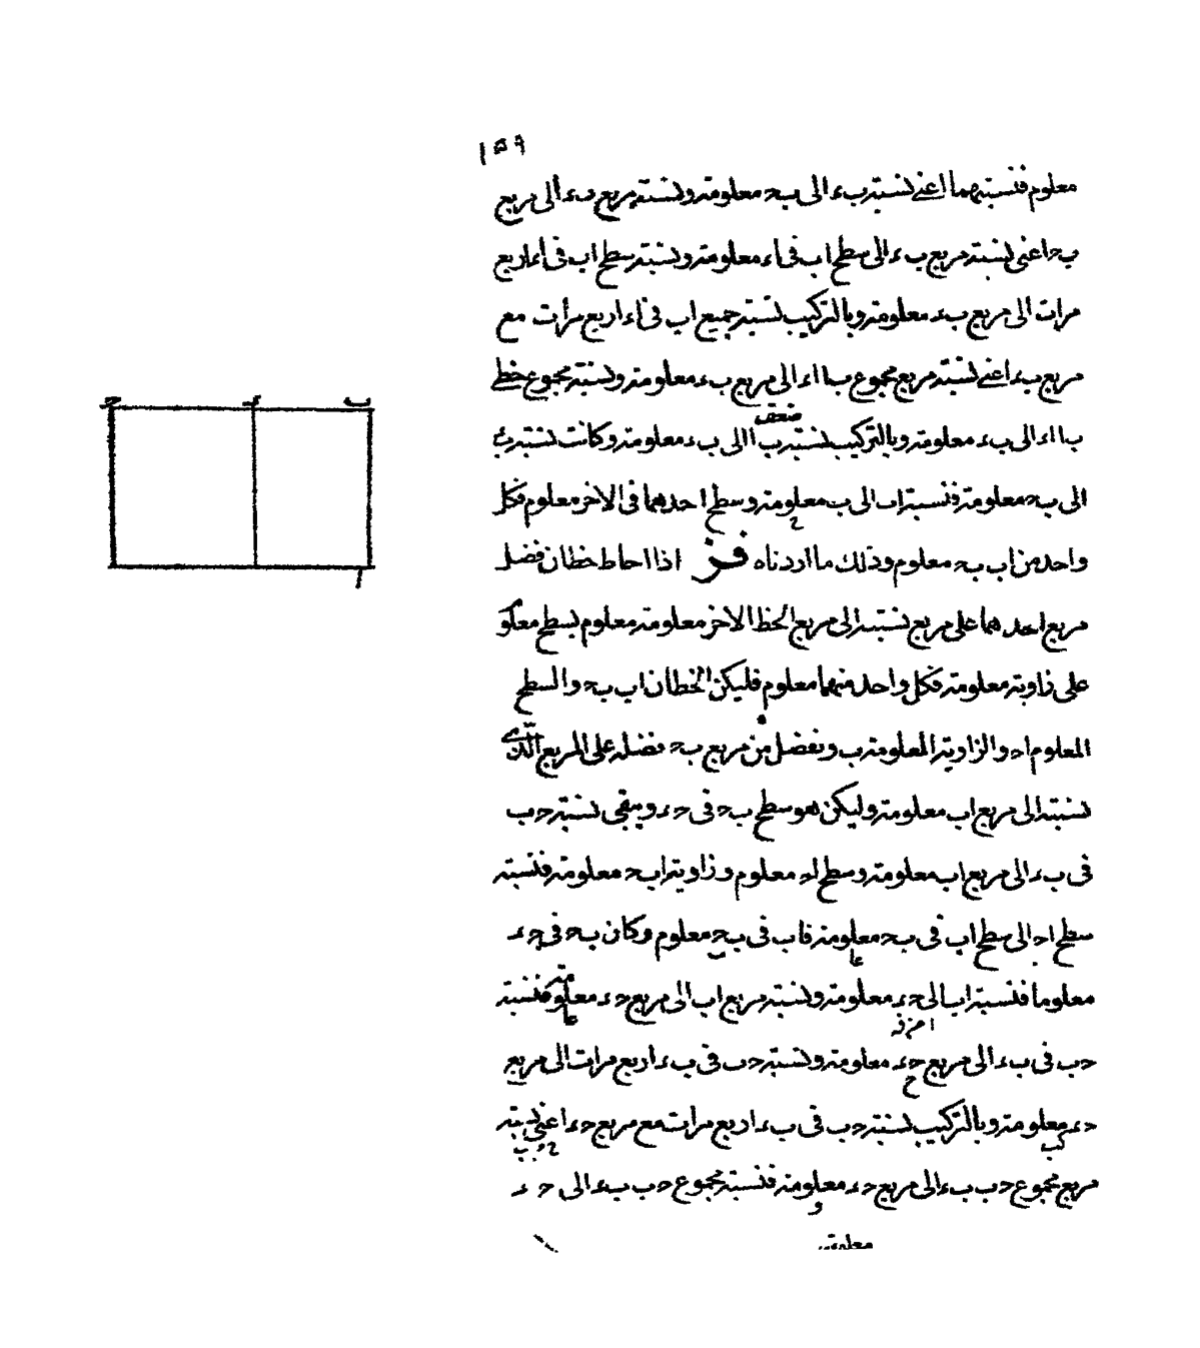 ١٥٩
معلوم فنسبتهما اعنى نسبة ب ء الى ب ح معلومة ونسبة مربع ب ء الى مربع
ب ح اعنى نسبة مربع ب ء الى سطح ا ب فى ا ء معلومة ونسبة سطح ا ب فى ا ء اربع
مرات الى مربع ب ء معلومة وبالتركيب نسبة جميع ا ب فى ا ء اربع مرات مع
مربع ب ء اعنى نسبة مربع مجموع ب ا ا ء الى مربع ب ء معلومة ونسبة مجموع خطى
ب ا ا ء الى ب ء معلومة وبالتركيب نسبة ضعف ب ا الى ب ء معلومة وكانت نسبة ب ء
الى ب ح معلومة فنسبة ا ب الى ب معلومة وسطح احدهما فى الاخر معلوم فكل
واحد من ا ب ب ح معلوم وذلك ما اردناه فز اذا احاط خطان فضل
مربع احدهما على مربع نسبته الى مربع الخط الاخر معلومة معلوم بسطح معلوم
على زاوية معلومة فكل واحد منهما معلوم فليكن الخطان ا ب ب ح والسطح
المعلوم ا ح والزاوية المعلومة ب ونفضل من مربع ب ح فضله على المربع الذى
نسبته الى مربع ا ب معلومة وليكن هو سطح ب ح فى ح ء ويبقى نسبة ح ب
فى ب ء الى مربع ا ب معلومة وسطح ا ح معلوم وزاوية ا ب ح معلومة فنسبة
سطح ا ح الى سطح ا ب فى ب ح معلومة فاب فى ب ح معلوم وكان ب ح فى ح ء
معلوما فنسبة ا ب الى ح ء معلومة ونسبة مربع ا ب الى مربع ح ء معلومة فنسبة
ح ب فى ب ء الى مربع ح ء معلومة ونسبة ح ب فى ب ء اربع مرات الى مربع
ح ء معلومة وبالتركيب نسبة ح ب فى ب ء اربع مرات مع مربع ح ء اعنى نسبة
مربع مجموع ح ب ب ء الى مربع ح ء معلومة فنسبة مجموع ح ب ب ء الى ح ء
معلومة
ح ء ب
ا